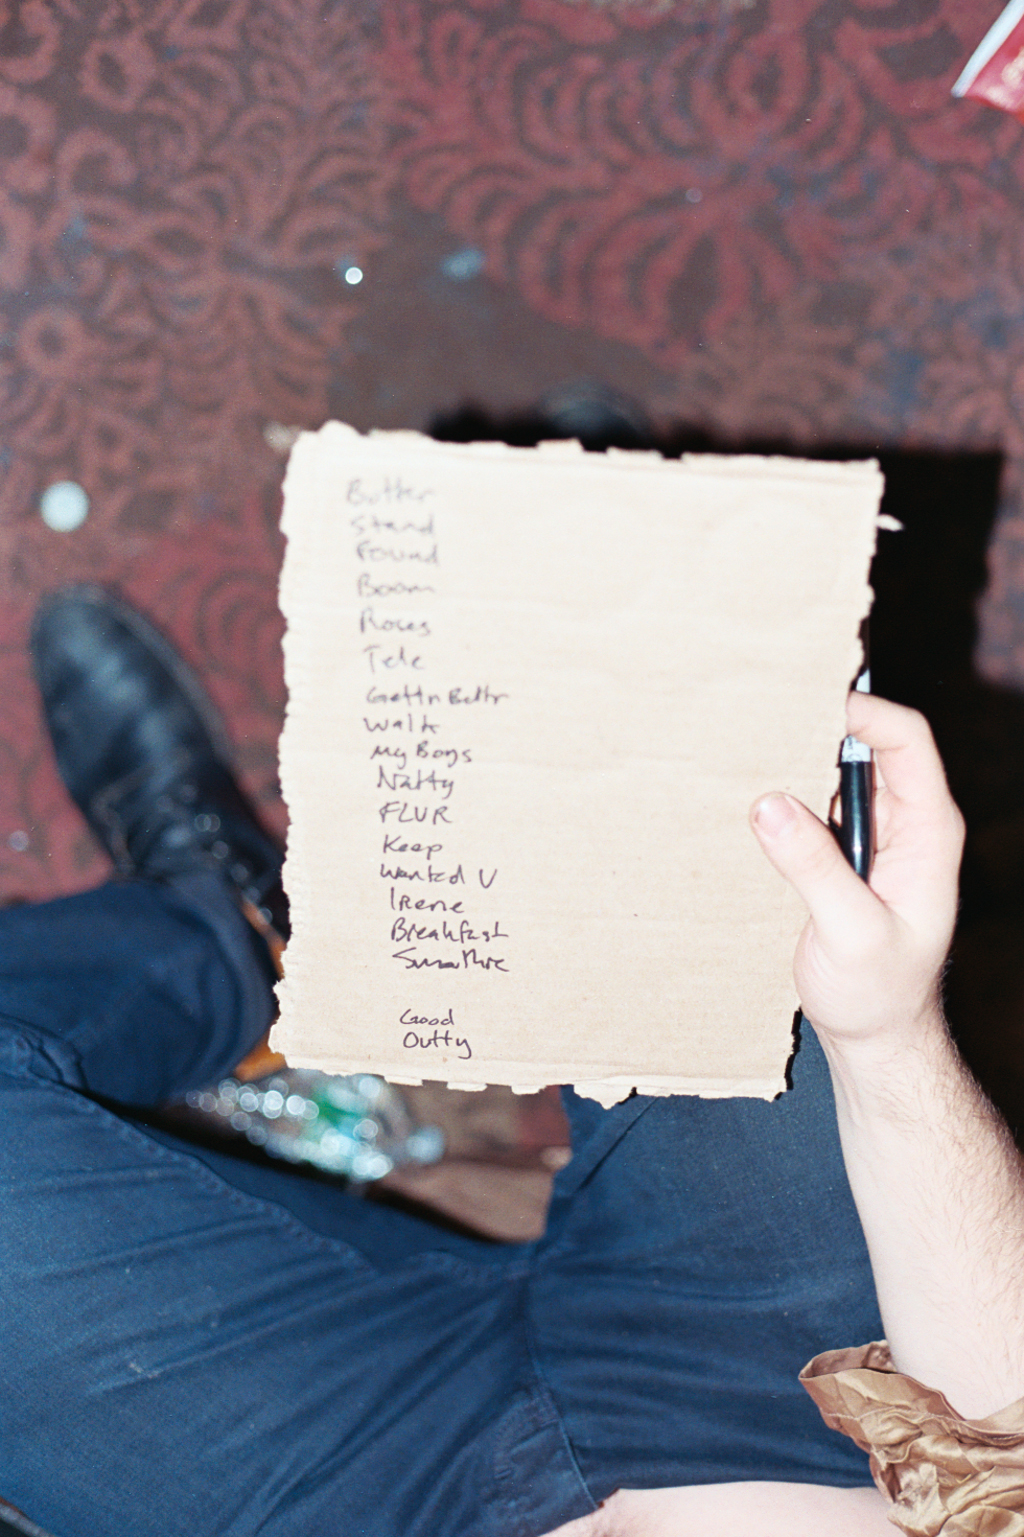 Butter
Stand
Found
Boom
Roses
Tele
Gettn Bettr
Walk
My Boys
Natty
FLUR
Keep
Wanted U
Irene
Breakfast
Smoothie
Good
Outty